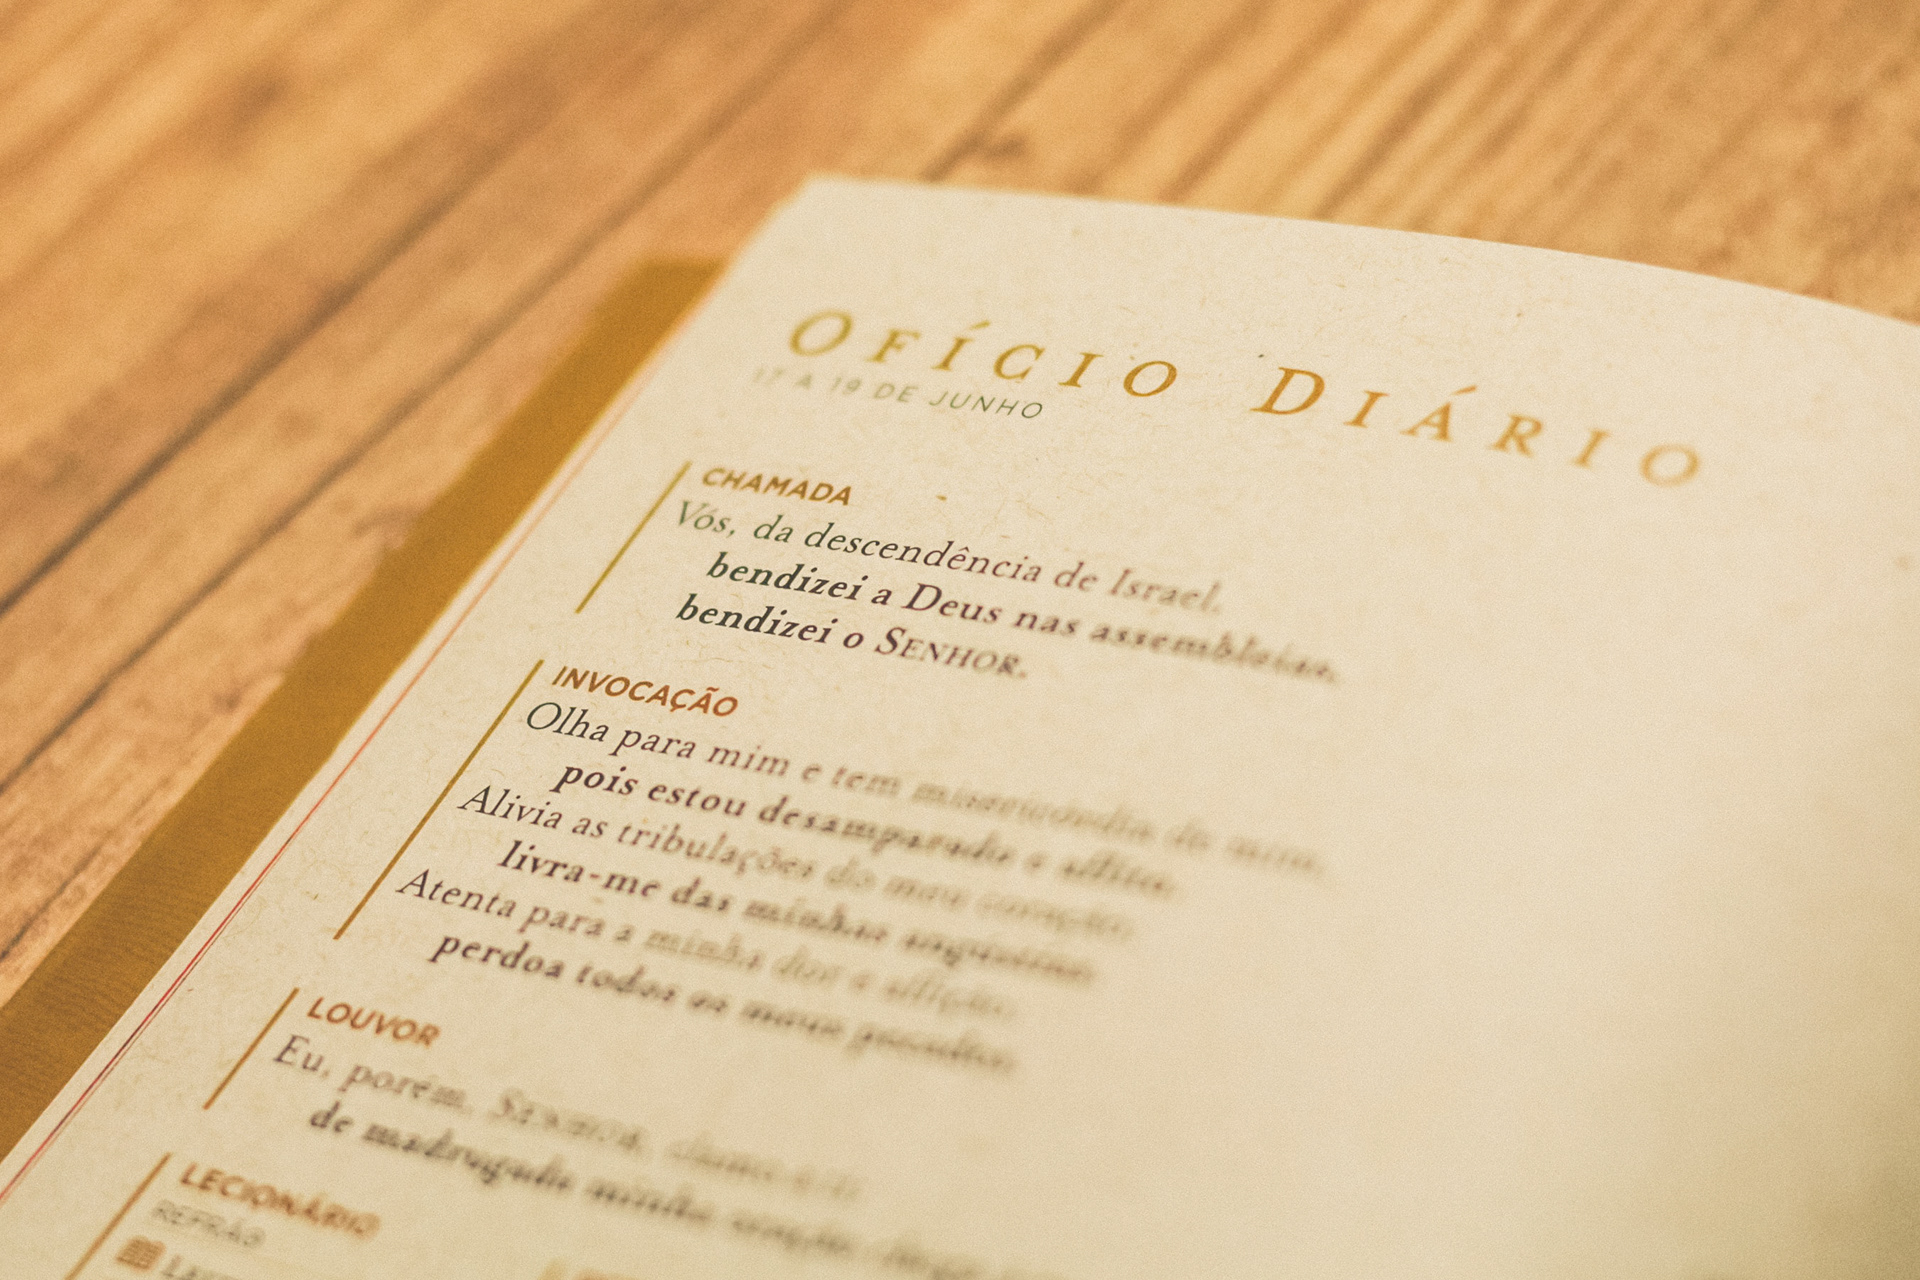 OFÍCIO DIÁRIO
17 A 19 DE JUNHO
CHAMADA
Vós, da descendência de Israel,
bendizei a Deus nas assembleias,
bendizei o SENHOR.
INVOCAÇÃO
Olha para mim e tem misericórdia de mim,
pois estou desamparado e aflito.
Alivia as tribulações do meu coração;
livra-me das minhas angústias.
Atenta para a minha dor e aflição;
perdoa todos os meus pecados.
LOUVOR
Eu, porém, SENHOR, clamo a ti;
de madrugada minha oração chega
LECIONÁRIO
REFRÃO